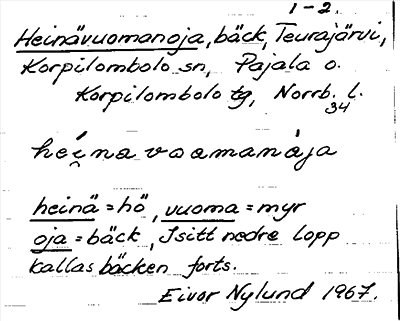 1-2.
Heinävuomanoja, bäck, Teurajärvi,
Korpilombolo sn, Pajala o.
Korpilombolo tg, Norrb. l.
34
heina vaamanaja
heinä = hö, vuoma = myr
oja = bäck, I sitt nedre lopp
kallas bäcken forts.
Eivor Nylund 1967.